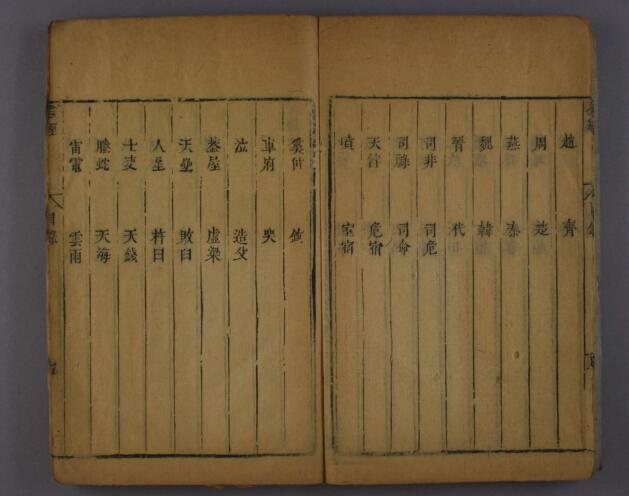 趙 齊
周 楚
燕 秦
魏 韓
晉 代
司非 司危
司祿 司命
天 危宿
墳 室宿
奚仲 鈎
車府
造父
蓋屋 虛梁
天壘 敗臼
人星 杵臼
土 天錢
螣蛇 天海
雷電 雲雨
目錄